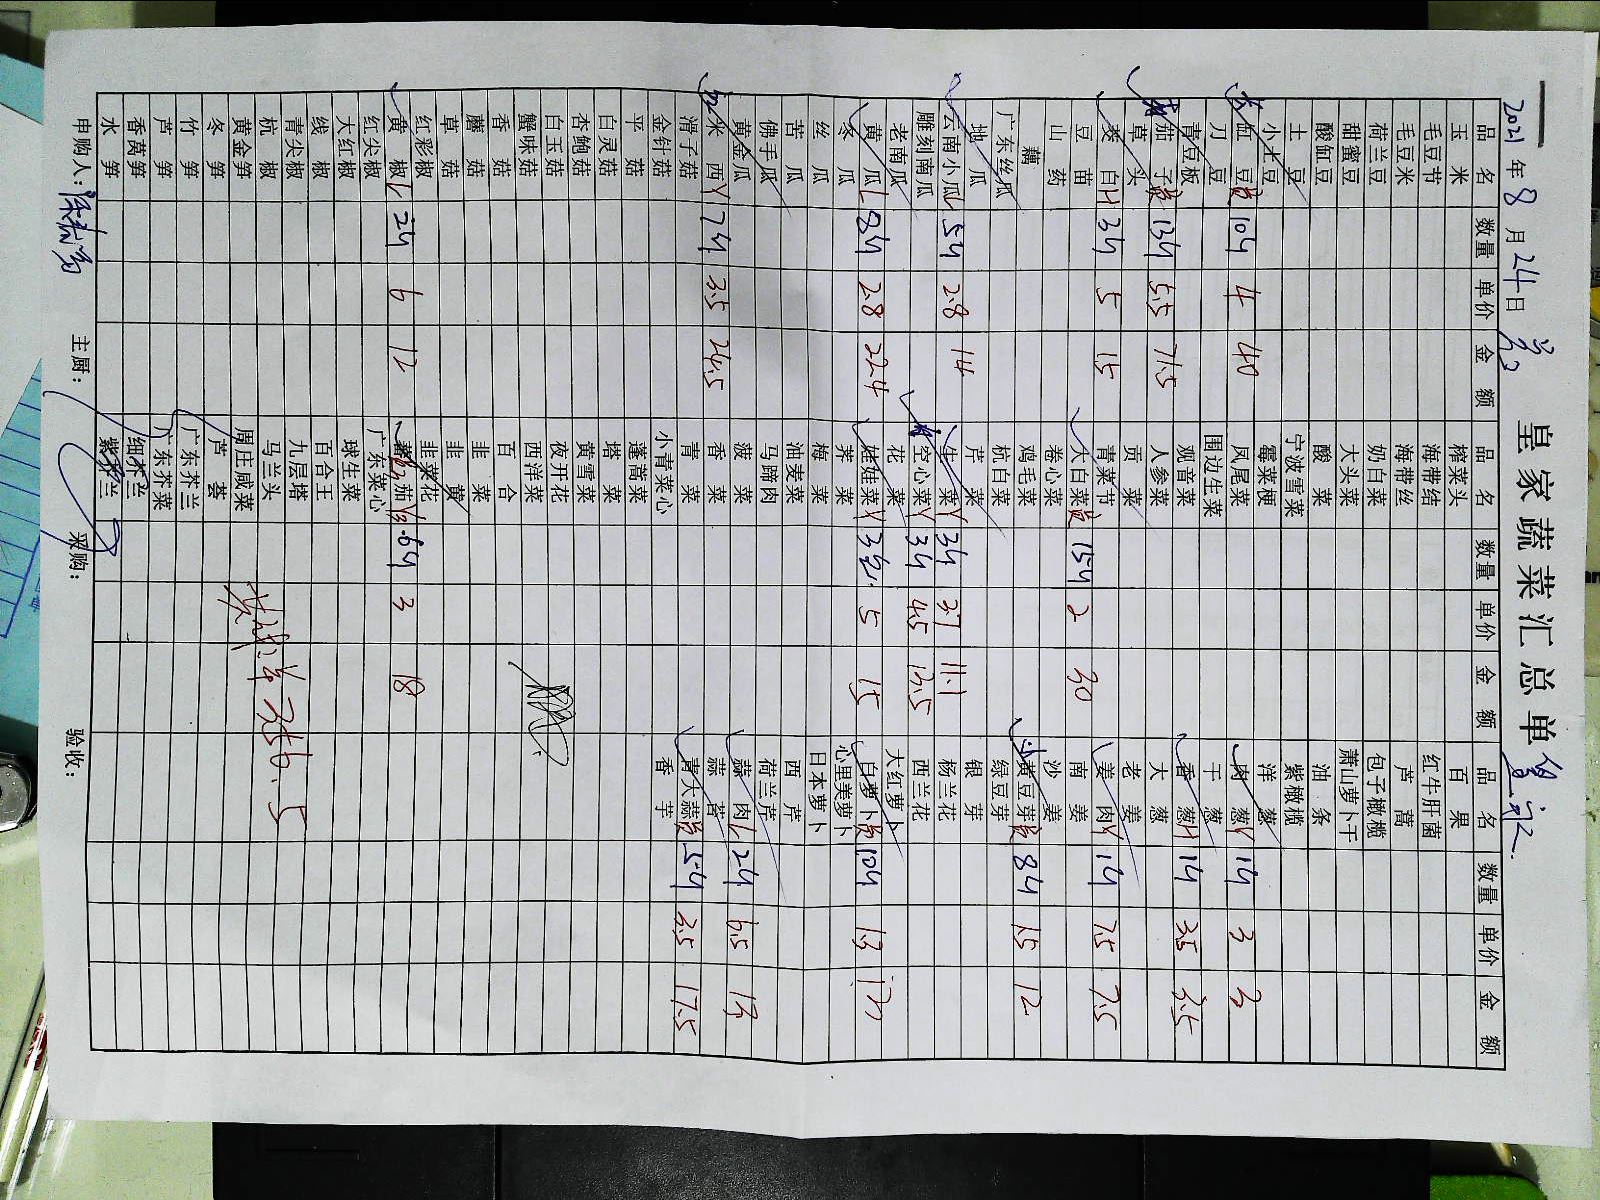 皇家蔬菜汇总单
2021年8月24日
品名 数量 单价 金额 品名 数量 单价 金额 品名 数量 单价 金额
玉米 榨菜头 百果
毛豆节 海带结 红牛肝菌
毛豆米 海带丝 芦蒿
荷兰豆 奶白菜 包子橄榄
甜蜜豆 大头菜 萧山萝卜干
酸缸豆 酸菜 油条
土豆 宁波雪菜 紫橄榄
小土豆 霉菜梗 洋葱
缸豆 10斤 4 40 凤尾菜 肉葱 1斤 3 3
刀豆 围边生菜 干葱
青豆板 观音菜 香葱 1斤 3.5 3.5
茄子 13斤 5.5 71.5 人参菜 大葱
草头 贡菜 老姜
娄白 3斤 5 15 青菜节 姜肉 1斤 7.5 7.5
豆苗 大白菜 15斤 2 30 南姜
山药 卷心菜 沙姜
藕 鸡毛菜 黄豆芽 8斤 1.5 12
广东丝瓜 杭白菜 绿豆芽
地瓜 芹菜 银芽
云南小瓜 5斤 2.8 14 生菜 3斤 3.7 11.1 杨兰花
雕刻南瓜 空心菜 3斤 4.5 13.5 西兰花
老南瓜 花菜 大红萝卜
黄瓜 8斤 2.8 22.4 娃娃菜 3 5 15 白萝卜 10斤 1.3 13
冬瓜 荠菜 心里美萝卜
丝瓜 梅菜 日本萝卜
苦瓜 油麦菜 西芹
佛手瓜 马蹄肉 荷兰芹
黄金瓜 菠菜 蒜肉 2斤 6.5 13
米西 7斤 3.5 24.5 香菜 蒜苔
滑子菇 青菜 青大蒜 5斤 3.5 17.5
金针菇 小青菜心 香芋
平菇 蓬蒿菜
白灵菇 塔菜
杏鲍菇 黄雪菜
白玉菇 夜开花
蟹味菇 西洋菜
香菇 百合
蘑菇 韭菜
草菇 韭黄
红彩椒 韭菜花
黄椒 2斤 6 12 茄 6斤 3 18
红尖椒 广东菜心
大红椒 球生菜
线椒 百合王
青尖椒 九层塔
杭椒 马兰头
黄金笋 周庄咸菜
冬笋 芦荟
竹笋 广东芥兰
芦笋 广东芥菜
香莴笋 细芥兰
水笋 紫芥兰
356.5
申购人： 主厨： 采购： 验收：